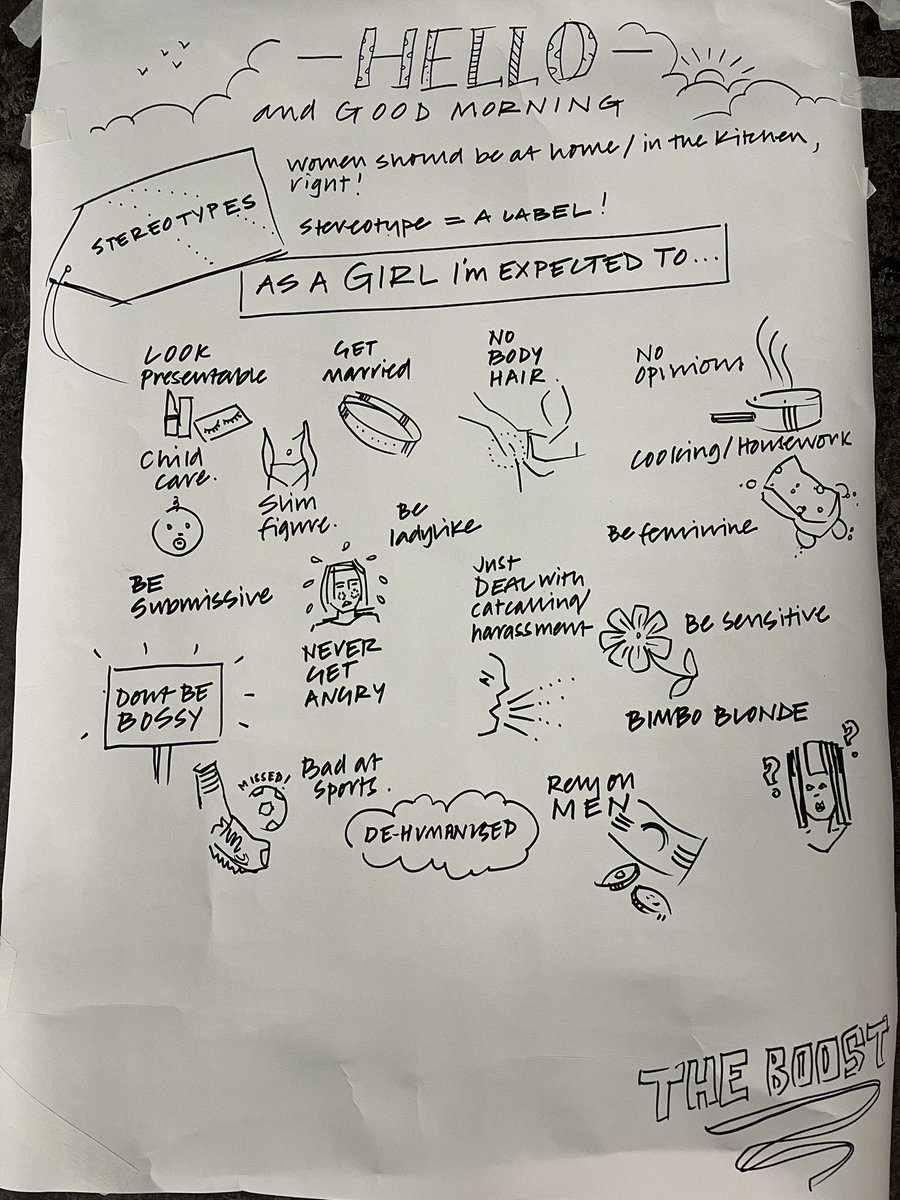 HELLO
and GOOD MORNING
women should be at home / in the kitchen,
right!
STEREOTYPES
Stereotype = A LABEL!
AS A GIRL I'm EXPECTED TO...
LOOK
Presentable
GET
married
NO
BODY
HAIR.
NO
Opinions
Child
care.
Slim
figure.
Be
ladylike
Cooking/Housework
Be feminine
BE
Submissive
NEVER
GET
ANGRY
Just
DEAL with
catcalling/
harassment
Be sensitive
DON'T BE
BOSSY
BIMBO BLONDE
? ?
MISSED!
Bad at
Sports.
DE-HUMANISED
Rely on
MEN
THE BOOST